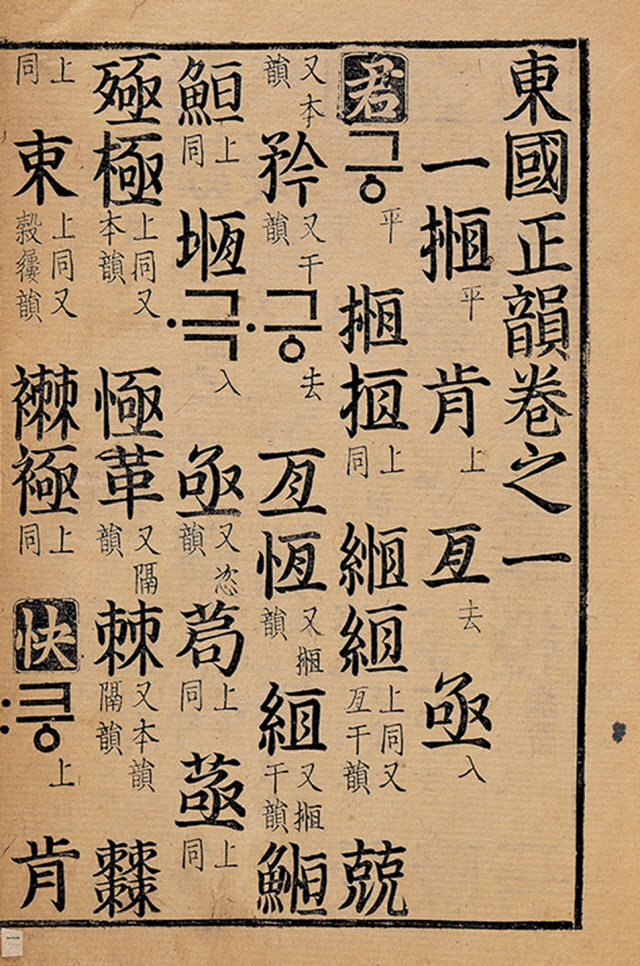 東國正韻卷之一
一揯平肯上亙去亟入
君긍平揯搄上同緪絚上同又亙干韻兢
又本韻矜又干韻·긍去亙恆又揯韻絚又揯干韻䱭
䱇上同堩·극入亟又恣韻茍上同上同
殛極上同又本韻㥛革又隔韻棘又本韻隔韻
上同上同又韻襋上同快:킁上肯